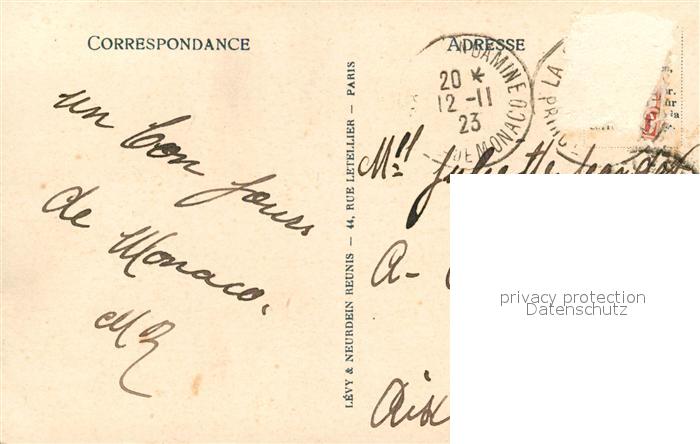 CORRESPONDANCE
un bon jours
de Monaco,
MR
LÉVY & NEURDEIN REUNIS — 44, RUE LETELLIER — PARIS
ADRESSE
LA
20 *
12 -11
23
DE MONACO
Mll Juliette
A-
Aix
privacy protection
Datenschutz